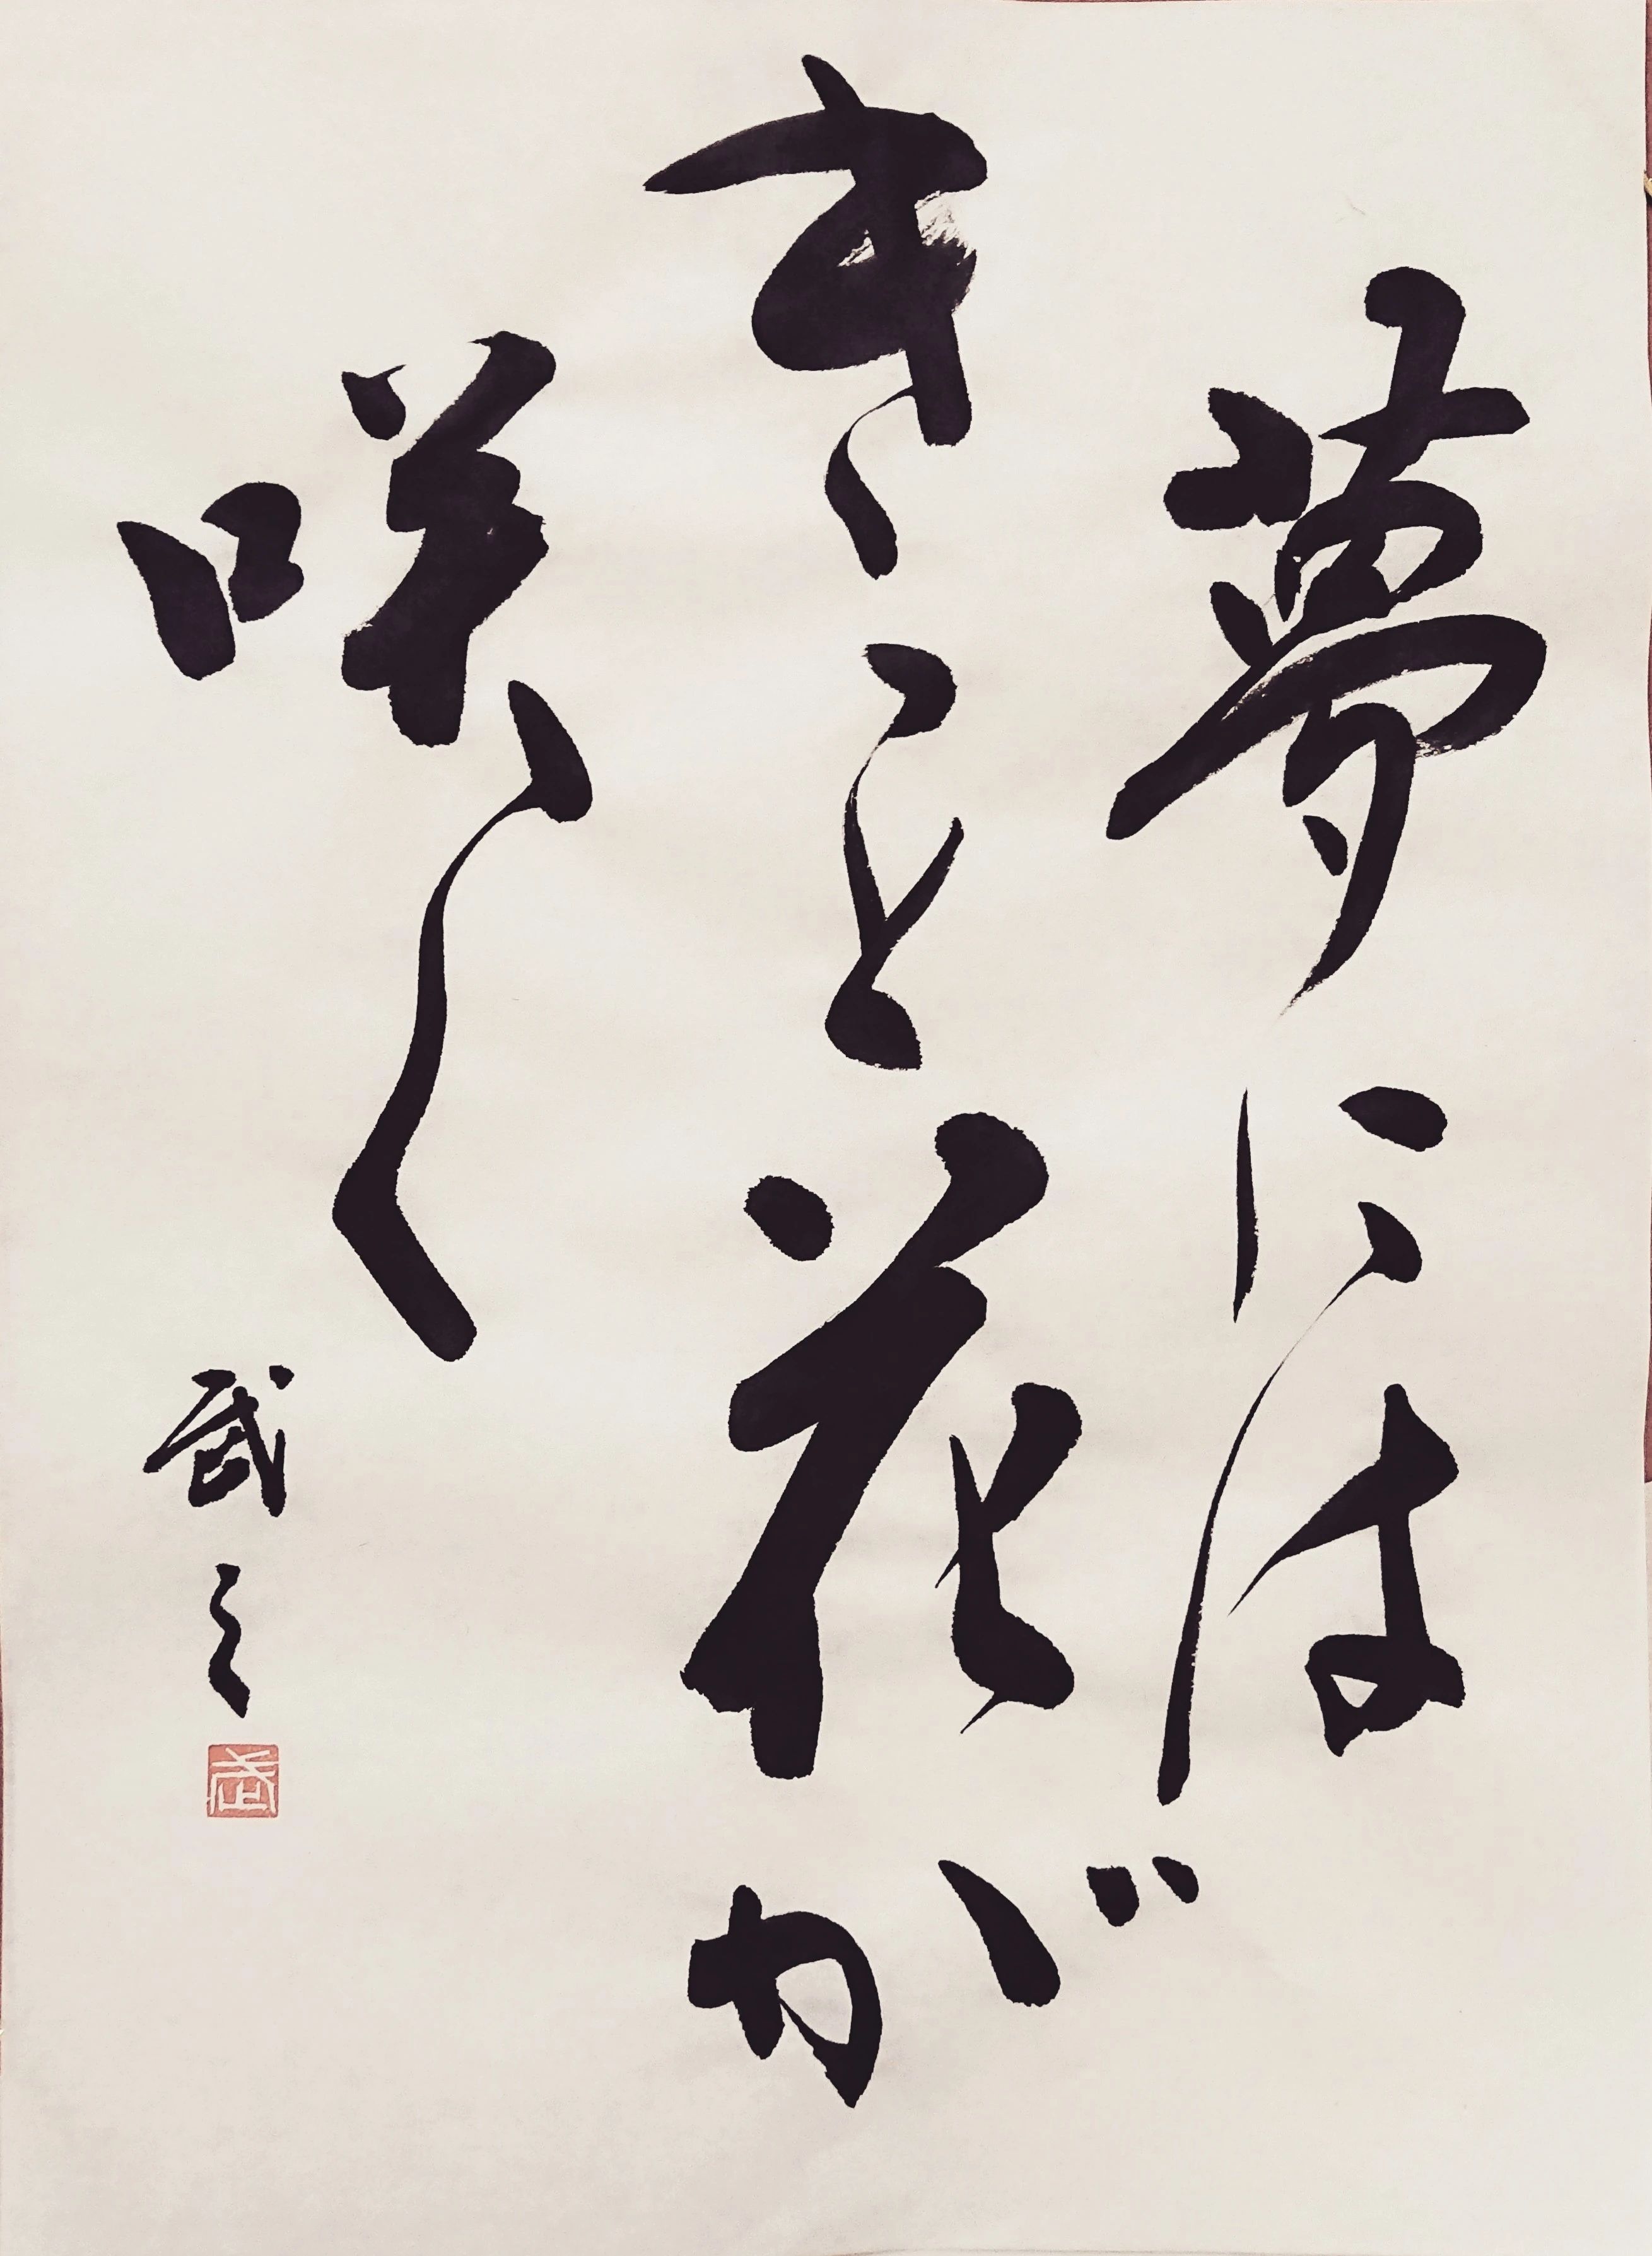 夢には
きっと花が
咲く
武之
武